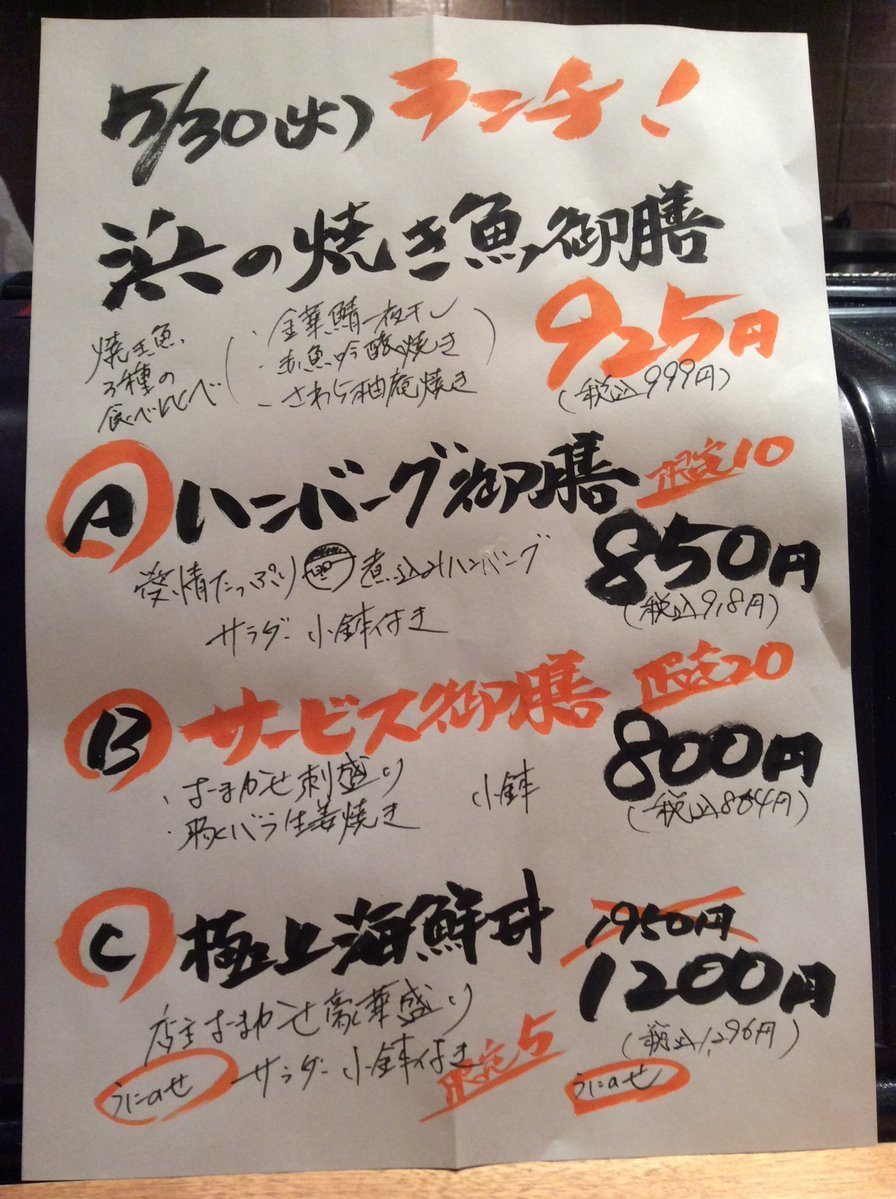 5/30(火) ランチ!
浜の焼き魚御膳
焼き魚、
3種の
食べ比べ
・金華鯖一夜干し
・赤魚吟醸焼き
・さわら柚庵焼き
925円
(税込999円)
A ハンバーグ御膳 限定10
愛情たっぷり 煮込みハンバング
サラダ・小鉢付き
850円
(税込918円)
B サービス御膳 限定20
・おまかせ刺盛り
・豚バラ生姜焼き 小鉢
800円
(税込864円)
C 極上海鮮丼
1950円
1200円
(税込1,296円)
店主おまかせ豪華盛り
サラダ・小鉢付き
限定5
うにのせ
うにのせ